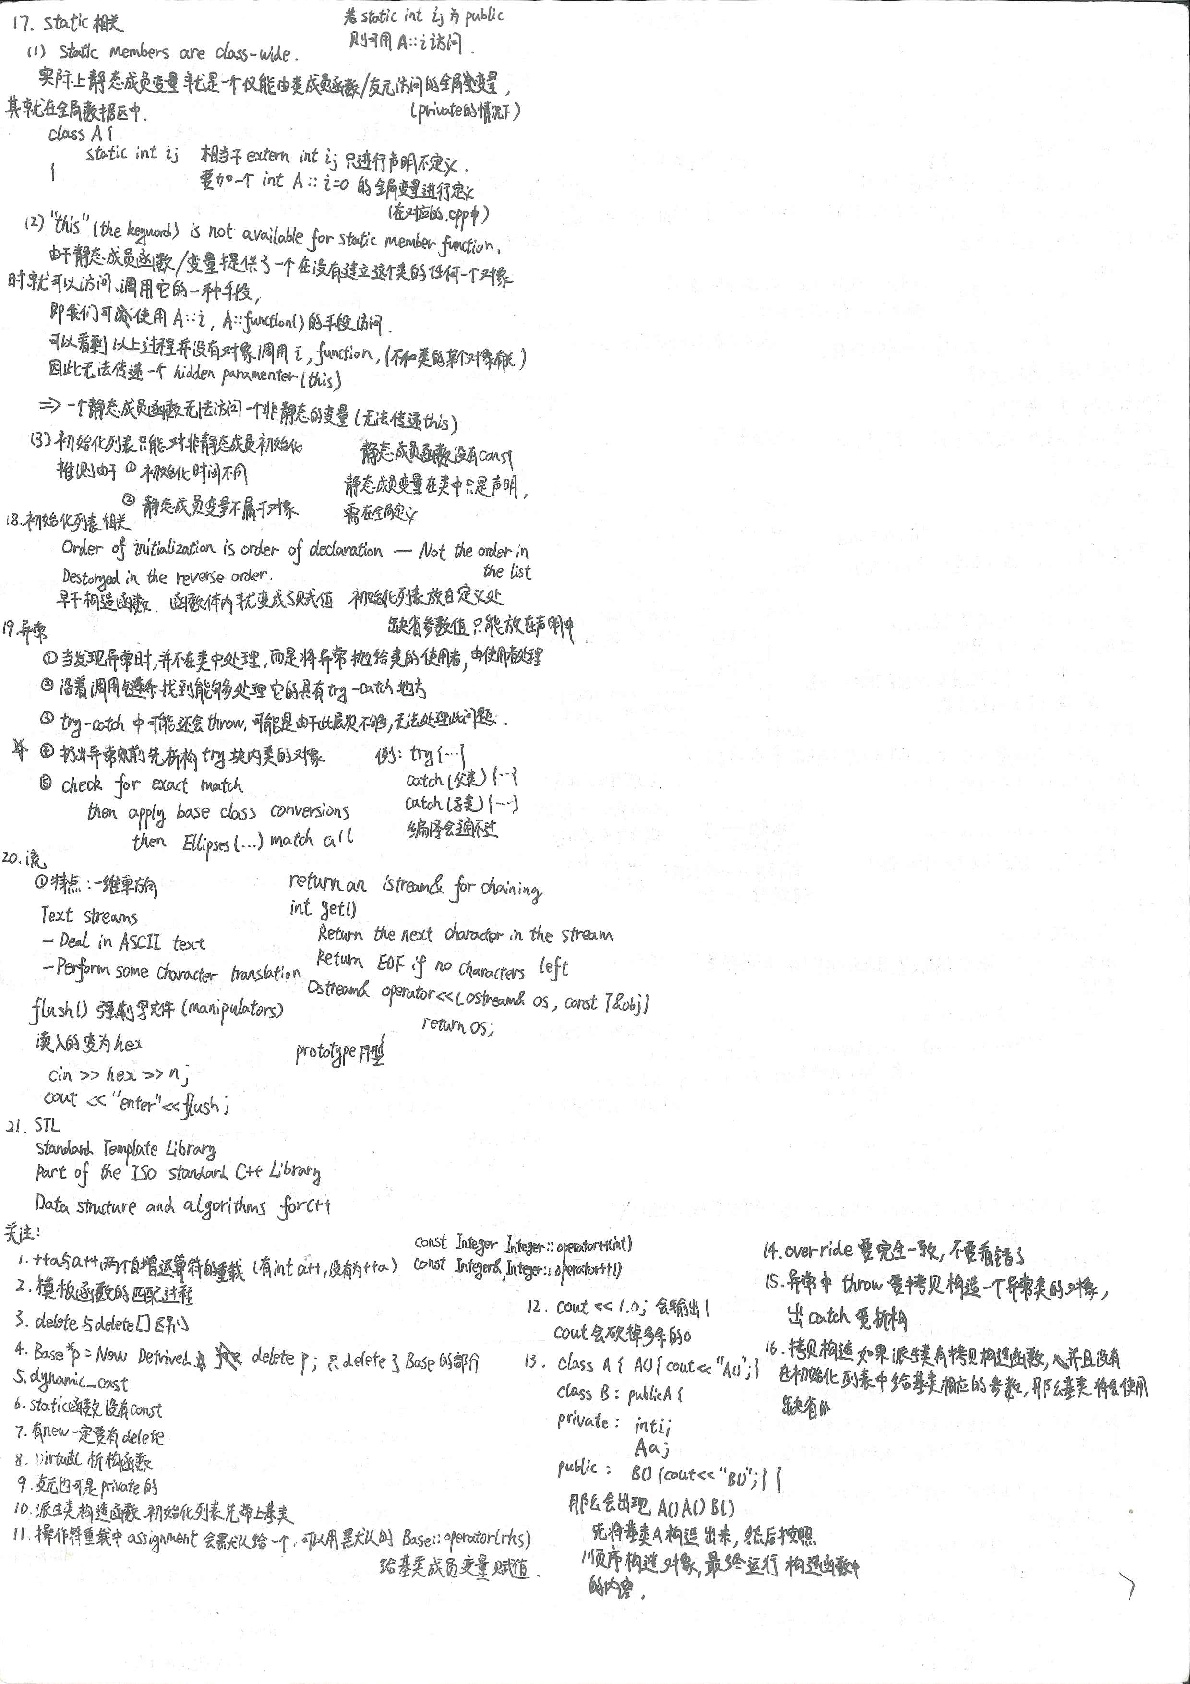 17. static相关
若static int i; 为 public
则可用 A::i 访问.
(1) Static members are class-wide.
实际上静态成员变量就是一个仅能由类成员函数/友元访问的全局变量,
(private的情况下)
其就在全局数据区中.
class A{
static int i; 相当于 extern int i; 只进行声明不定义.
{ 要加一个 int A::i=0 的全局变量进行定义
(在对应的.cpp中)
(2) "this" (the keyword) is not available for static member function.
由于静态成员函数/变量提供了一个在没有建立这个类的任何一个对象
时就可以访问、调用它的一种手段,
即我们可以使用 A::i, A::function() 的手段访问.
可以看到以上过程并没有对象调用 i, function, (不和类的某个对象有关)
因此无法传递一个 hidden paramenter (this)
⇒ 一个静态成员函数无法访问一个非静态的变量 (无法传递this)
(3) 初始化列表只能对非静态成员初始化
推测由于 ① 初始化时间不同
② 静态成员变量不属于对象
静态成员函数没有const
静态成员变量在类中只是声明,
需在全局定义
18. 初始化列表相关
Order of initialization is order of declaration — Not the order in
the list
Destoryed in the reverse order.
早于构造函数 函数体内就变成了赋值 初始化列表放在定义处
缺省参数值只能放在声明中
19. 异常
① 当发现异常时, 并不在类中处理, 而是将异常抛给类的使用者, 由使用者处理
② 沿着调用链条找到能够处理它的具有try-catch地方
③ try-catch 中可能还会throw, 可能是由于此层次不够, 无法处理此问题.
④ 扔出异常之前先析构try块内类的对象
⑤ check for exact match
then apply base class conversions
then Ellipses (...) match all
例: try{...}
catch(父类){...}
catch(子类){...}
编译会通不过
20. 流
① 特点: 一维单方向
Text streams
- Deal in ASCII text
- Perform some character translation
flush() 强制写文件 (manipulators)
读入的变为hex
cin >> hex >> n;
cout << "enter" << flush;
return an istream& for chaining
int get()
Return the next charactor in the stream
Return EOF if no characters left
Ostream& operator<<(ostream& os, const T&obj)
return os;
prototype 原型
21. STL
Standard Template Library
Part of the ISO standard C++ Library
Data structure and algorithms for C++
关注:
1. ++a与a++两个自增运算符的重载 (有int a++, 没有为++a)
const Integer Integer::operator++(int)
const Integer& Integer::operator++()
2. 模板函数的匹配过程
3. delete与delete[]区别
4. Base *p = New Detrived; delete p; 只delete了Base的部分
5. dynamic_cast
6. static函数没有const
7. 有new一定要有delete
8. virtual 析构函数
9. 友元也可是private的
10. 派生类构造函数 初始化列表先带上基类
11. 操作符重载中 assignment 会默认给一个, 可以用默认的 Base::operator(rhs)
给基类成员变量赋值.
12. cout << 1.0; 会输出1
cout会砍掉多余的0
13. class A { A(){cout<<"A()";}
class B: public A {
private: int i;
A a;
public: B() {cout<<"B()";} {
那么会出现 A()A()B()
先将基类A构造出来, 然后按照
顺序构造对象, 最终运行构造函数中
的内容.
14. override 要完全一致, 不要看错了
15. 异常中 throw 要拷贝构造一个异常类的对象,
出 catch 要析构
16. 拷贝构造如果派生类有拷贝构造函数, 并且没有
在初始化列表中给基类相应的参数, 那么基类将会使用
缺省的